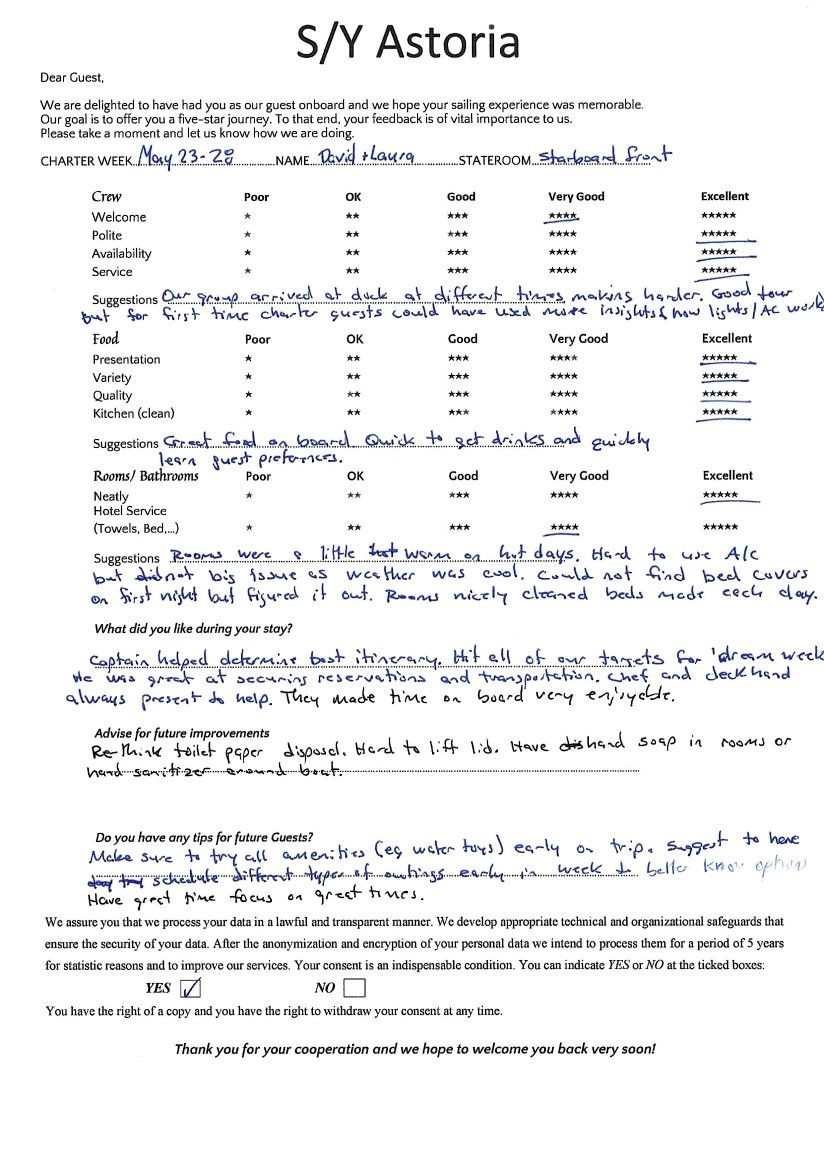 S/Y Astoria
Dear Guest,
We are delighted to have had you as our guest onboard and we hope your sailing experience was memorable.
Our goal is to offer you a five-star journey. To that end, your feedback is of vital importance to us.
Please take a moment and let us know how we are doing.
CHARTER WEEK May 23-28 NAME David + Laura STATEROOM Starboard front
Crew Poor OK Good Very Good Excellent
Welcome * ** *** **** *****
Polite * ** *** **** *****
Availability * ** *** **** *****
Service * ** *** **** *****
Suggestions Our group arrived at dock at different times making harder. Good tour
but for first time charter guests could have used more insights how lights/AC work
Food Poor OK Good Very Good Excellent
Presentation * ** *** **** *****
Variety * ** *** **** *****
Quality * ** *** **** *****
Kitchen (clean) * ** *** **** *****
Suggestions Great food on board. Quick to get drinks and quickly
learn guest preferences.
Rooms/ Bathrooms Poor OK Good Very Good Excellent
Neatly * ** *** **** *****
Hotel Service
(Towels, Bed,...) * ** *** **** *****
Suggestions Rooms were a little warm on hot days. Hard to use A/C
but not big issue as weather was cool. Could not find bed covers
on first night but figured it out. Rooms nicely cleaned beds made each day.
What did you like during your stay?
Captain helped determine best itinerary. Hit all of our targets for 'dream week
He was great at securing reservations and transportation. Chef and deckhand
always present to help. They made time on board very enjoyable.
Advise for future improvements
Re-think toilet paper disposal. Hard to lift lid. Have hand soap in rooms or
hand sanitizer around boat.
Do you have any tips for future Guests?
Make sure to try all amenities (eg water toys) early on trip. Suggest to have
schedule different types of outings early in week to better know options
Have great time focus on great times.
We assure you that we process your data in a lawful and transparent manner. We develop appropriate technical and organizational safeguards that
ensure the security of your data. After the anonymization and encryption of your personal data we intend to process them for a period of 5 years
for statistic reasons and to improve our services. Your consent is an indispensable condition. You can indicate YES or NO at the ticked boxes:
YES ☑ NO ☐
You have the right of a copy and you have the right to withdraw your consent at any time.
Thank you for your cooperation and we hope to welcome you back very soon!